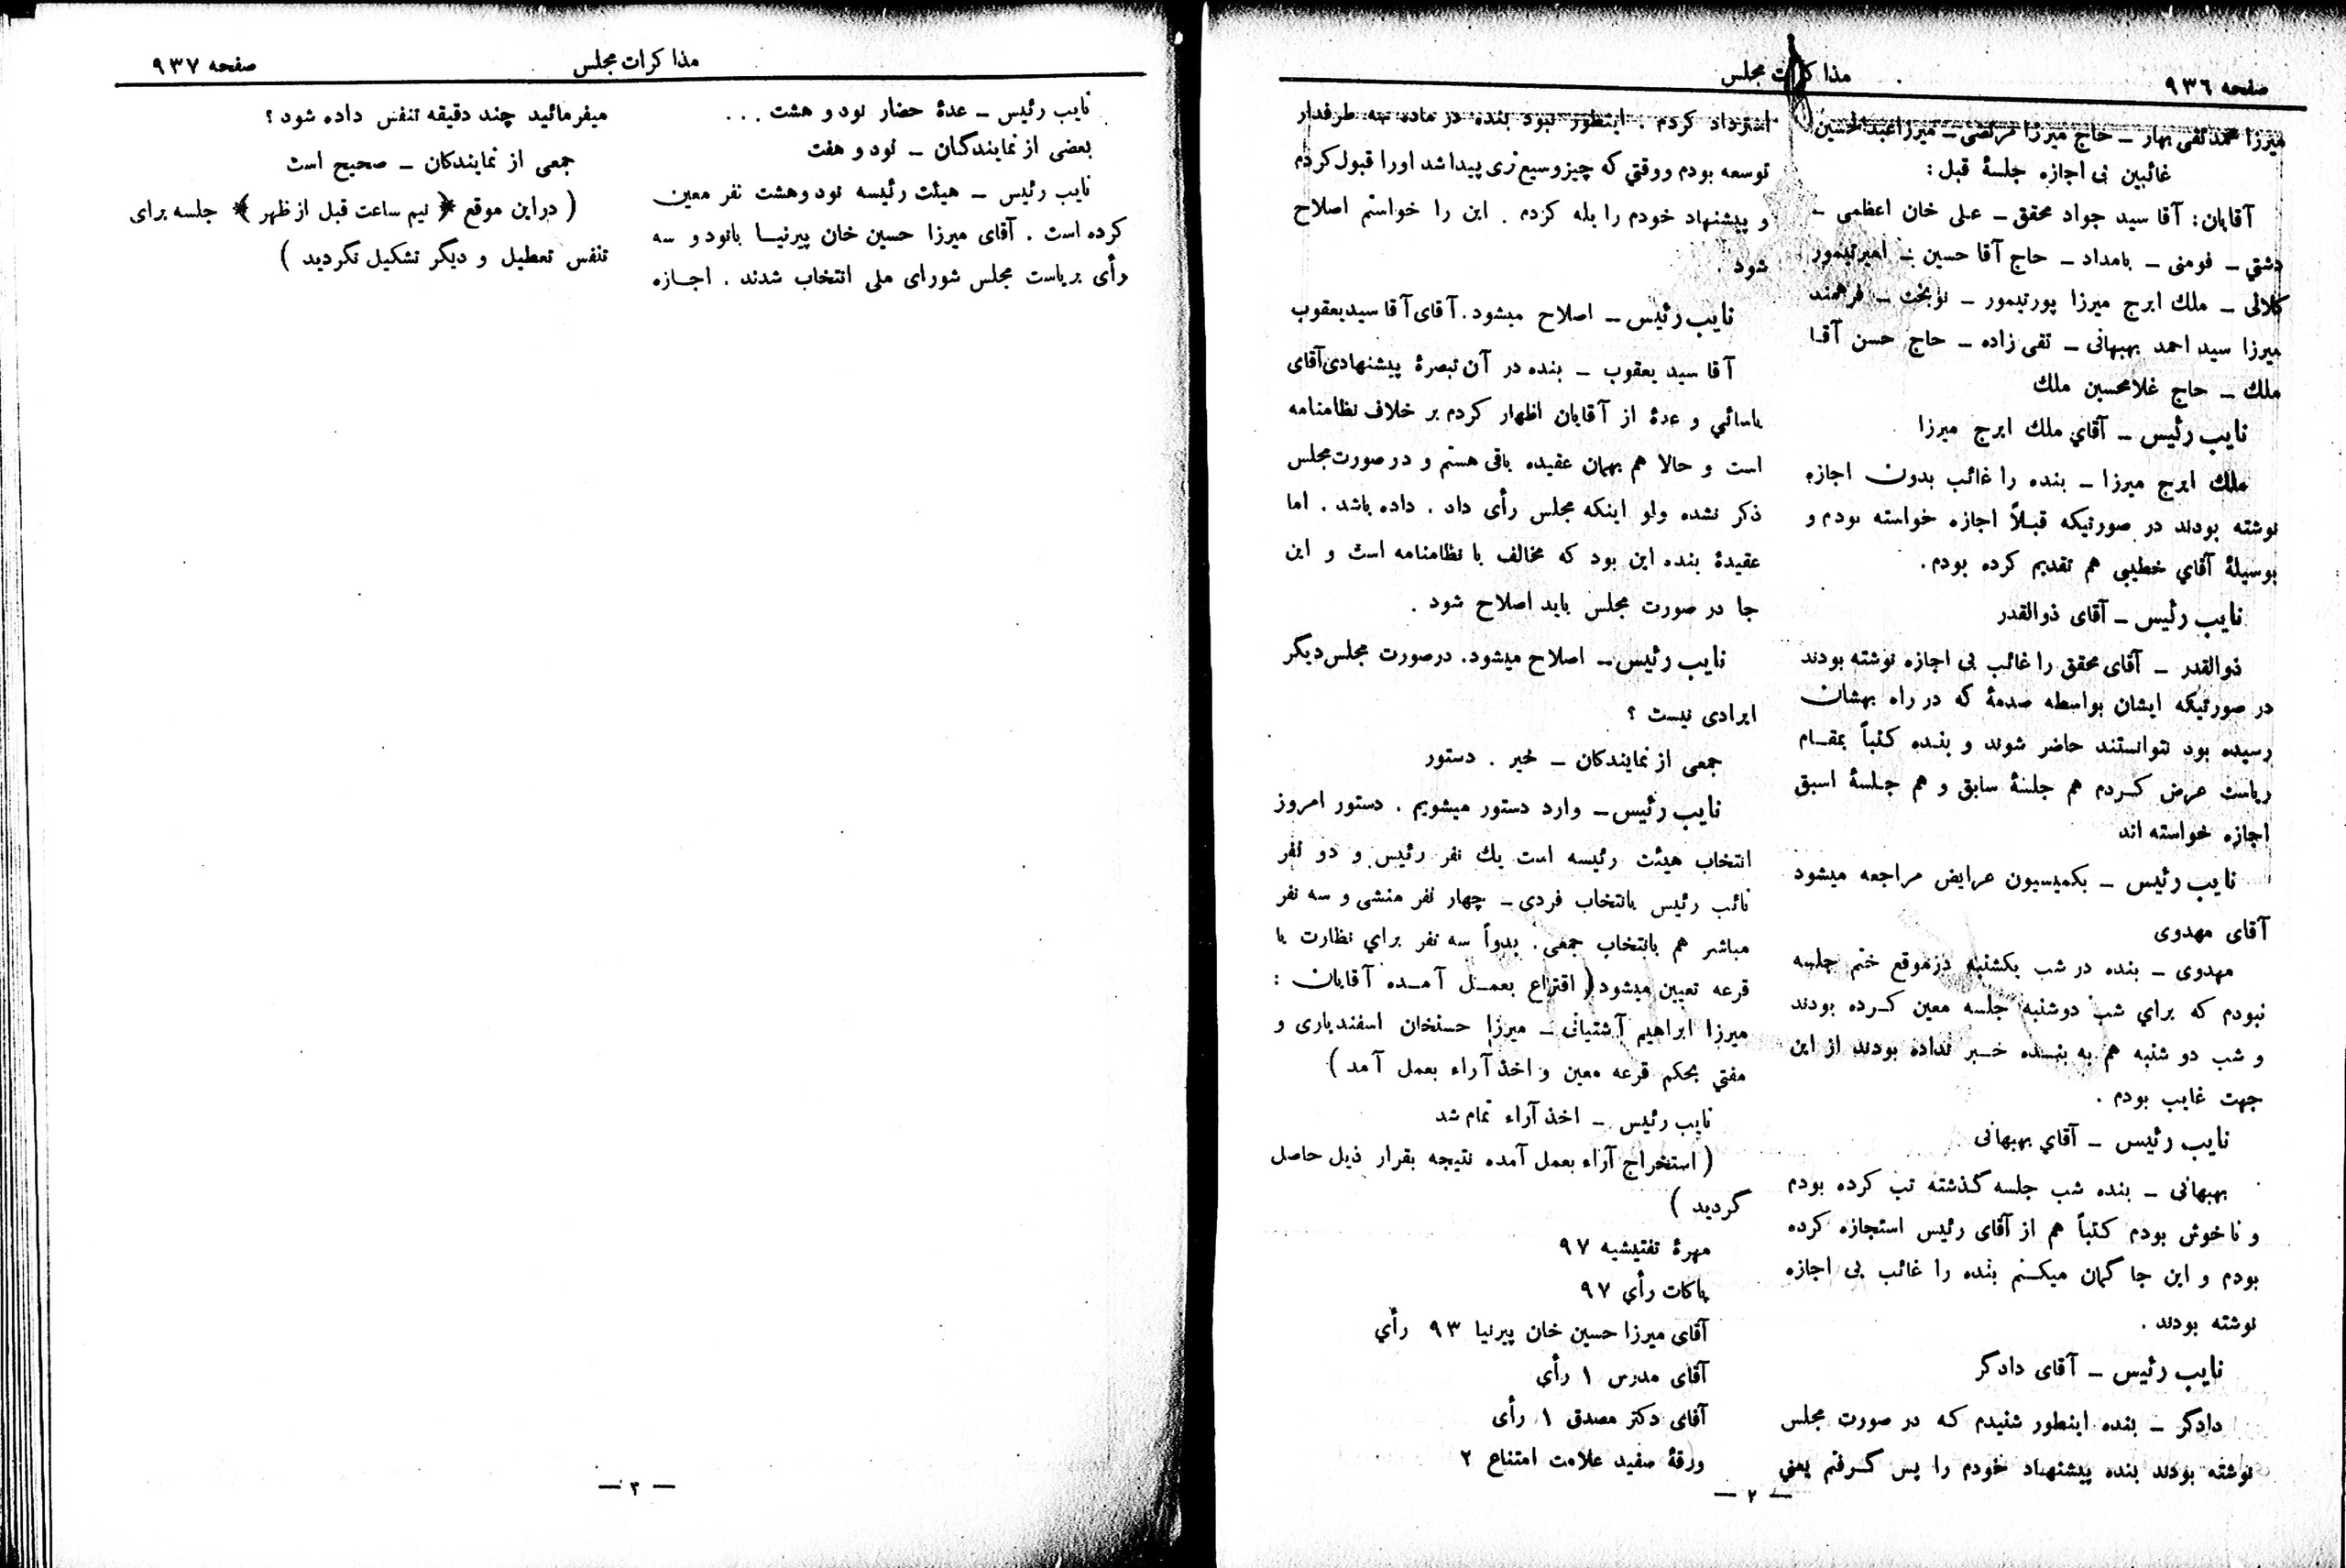 صفحه ۹۳٦
مذاکرات مجلس
میرزا محمدتقی بهار ــ حاج میرزا مرتضی ــ میرزا عبدالحسین
غائبین بی اجازه جلسهٔ قبل :
آقایان : آقا سید جواد محقق ــ علی خان اعظمی ــ
دشتي ــ فومنی ــ بامداد ــ حاج آقا حسین ــ امیر تیمور
کلالی ــ ملك ایرج میرزا پورتیمور ــ نوبخت ــ فرهمند
میرزا سید احمد بهبهانی ــ تقی زاده ــ حاج حسن آقا
ملك ــ حاج غلامحسین ملك
نایب رئیس ــ آقاي ملك ایرج میرزا
ملك ایرج میرزا ــ بنده را غائب بدون اجازه
نوشته بودند در صورتیکه قبلاً اجازه خواسته بودم و
بوسیلهٔ آقاي خطیبی هم تقدیم کرده بودم.
نایب رئیس ــ آقای ذوالقدر
ذوالقدر ــ آقای محقق را غائب بی اجازه نوشته بودند
در صورتیکه ایشان بواسطه صدمهٔ که در راه بهشان
رسیده بود نتوانستند حاضر شوند و بنده کتباً بمقام
ریاست عرض کردم هم جلسهٔ سابق و هم جلسهٔ اسبق
اجازه خواسته اند
نایب رئیس ــ بکمیسیون عرایض مراجعه میشود
آقای مهدوی
مهدوی ــ بنده در شب یکشنبه درموقع ختم جلسه
نبودم که براي شب دوشنبه جلسه معین کرده بودند
و شب دو شنبه هم به بنده خبر نداده بودند از این
جهت غایب بودم .
نایب رئیس ــ آقاي بهبهانی
بهبهانی ــ بنده شب جلسه گذشته تب کرده بودم
و ناخوش بودم کتباً هم از آقای رئیس استجازه کرده
بودم و این جا گمان میکنم بنده را غائب بی اجازه
نوشته بودند .
نایب رئیس ــ آقای دادگر
دادگر ــ بنده اینطور شنیدم که در صورت مجلس
نوشته بودند بنده پیشنهاد خودم را پس گرفتم یعني
استرداد کردم . اینطور نبود بنده در ماده سه طرفدار
توسعه بودم ووقتي که چیز وسیع تری پیدا شد اورا قبول کردم
و پیشنهاد خودم را بله کردم . این را خواستم اصلاح
شود .
نایب رئیس ــ اصلاح میشود . آقای آقا سیدیعقوب
آقا سید یعقوب ــ بنده در آن تبصرهٔ پیشنهادی آقای
یاسائي و عدهٔ از آقایان اظهار کردم بر خلاف نظامنامه
است و حالا هم بهمان عقیده باقی هستم و در صورت مجلس
ذکر نشده ولو اینکه مجلس رأی داد . داده باشد . اما
عقیدهٔ بنده این بود که مخالف با نظامنامه است و این
جا در صورت مجلس باید اصلاح شود .
نایب رئیس ــ اصلاح میشود . درصورت مجلس دیگر
ایرادی نیست ؟
جمعی از نمایندکان ــ خیر . دستور
نایب رئیس ــ وارد دستور میشویم . دستور امروز
انتخاب هیئت رئیسه است یك نفر رئیس و دو نفر
نائب رئیس بانتخاب فردی ــ چهار نفر منشی و سه نفر
مباشر هم بانتخاب جمعی . بدواً سه نفر براي نظارت با
قرعه تعیین میشود ( اقتراع بعمل آمده آقایان :
میرزا ابراهیم آشتیانی ــ میرزا حسنخان اسفندیاری و
مفتي بحکم قرعه معین و اخذ آراء بعمل آمد )
نایب رئیس ــ اخذ آراء تمام شد
( استخراج آراء بعمل آمده نتیجه بقرار ذیل حاصل
گردید )
مهرهٔ تفتیشیه ۹۷
پاکات رأي ۹۷
آقای میرزا حسین خان پیرنیا ۹۳ رأي
آقای مدرس ۱ رأي
آقای دکتر مصدق ۱ رأی
ورقهٔ سفید علامت امتناع ۲
— ۲ —
مذاکرات مجلس
صفحه ۹۳۷
نایب رئیس ــ عدهٔ حضار نود و هشت . . .
بعضی از نمایندگان ــ نود و هفت
نایب رئیس ــ هیئت رئیسه نود وهشت نفر معین
کرده است . آقای میرزا حسین خان پیرنیا بانود و سه
رأی بریاست مجلس شورای ملی انتخاب شدند . اجازه
میفرمائید چند دقیقه تنفس داده شود ؟
جمعی از نمایندکان ــ صحیح است
( دراین موقع ( نیم ساعت قبل از ظهر ) جلسه برای
تنفس تعطیل و دیگر تشکیل نگردید )
— ۳ —